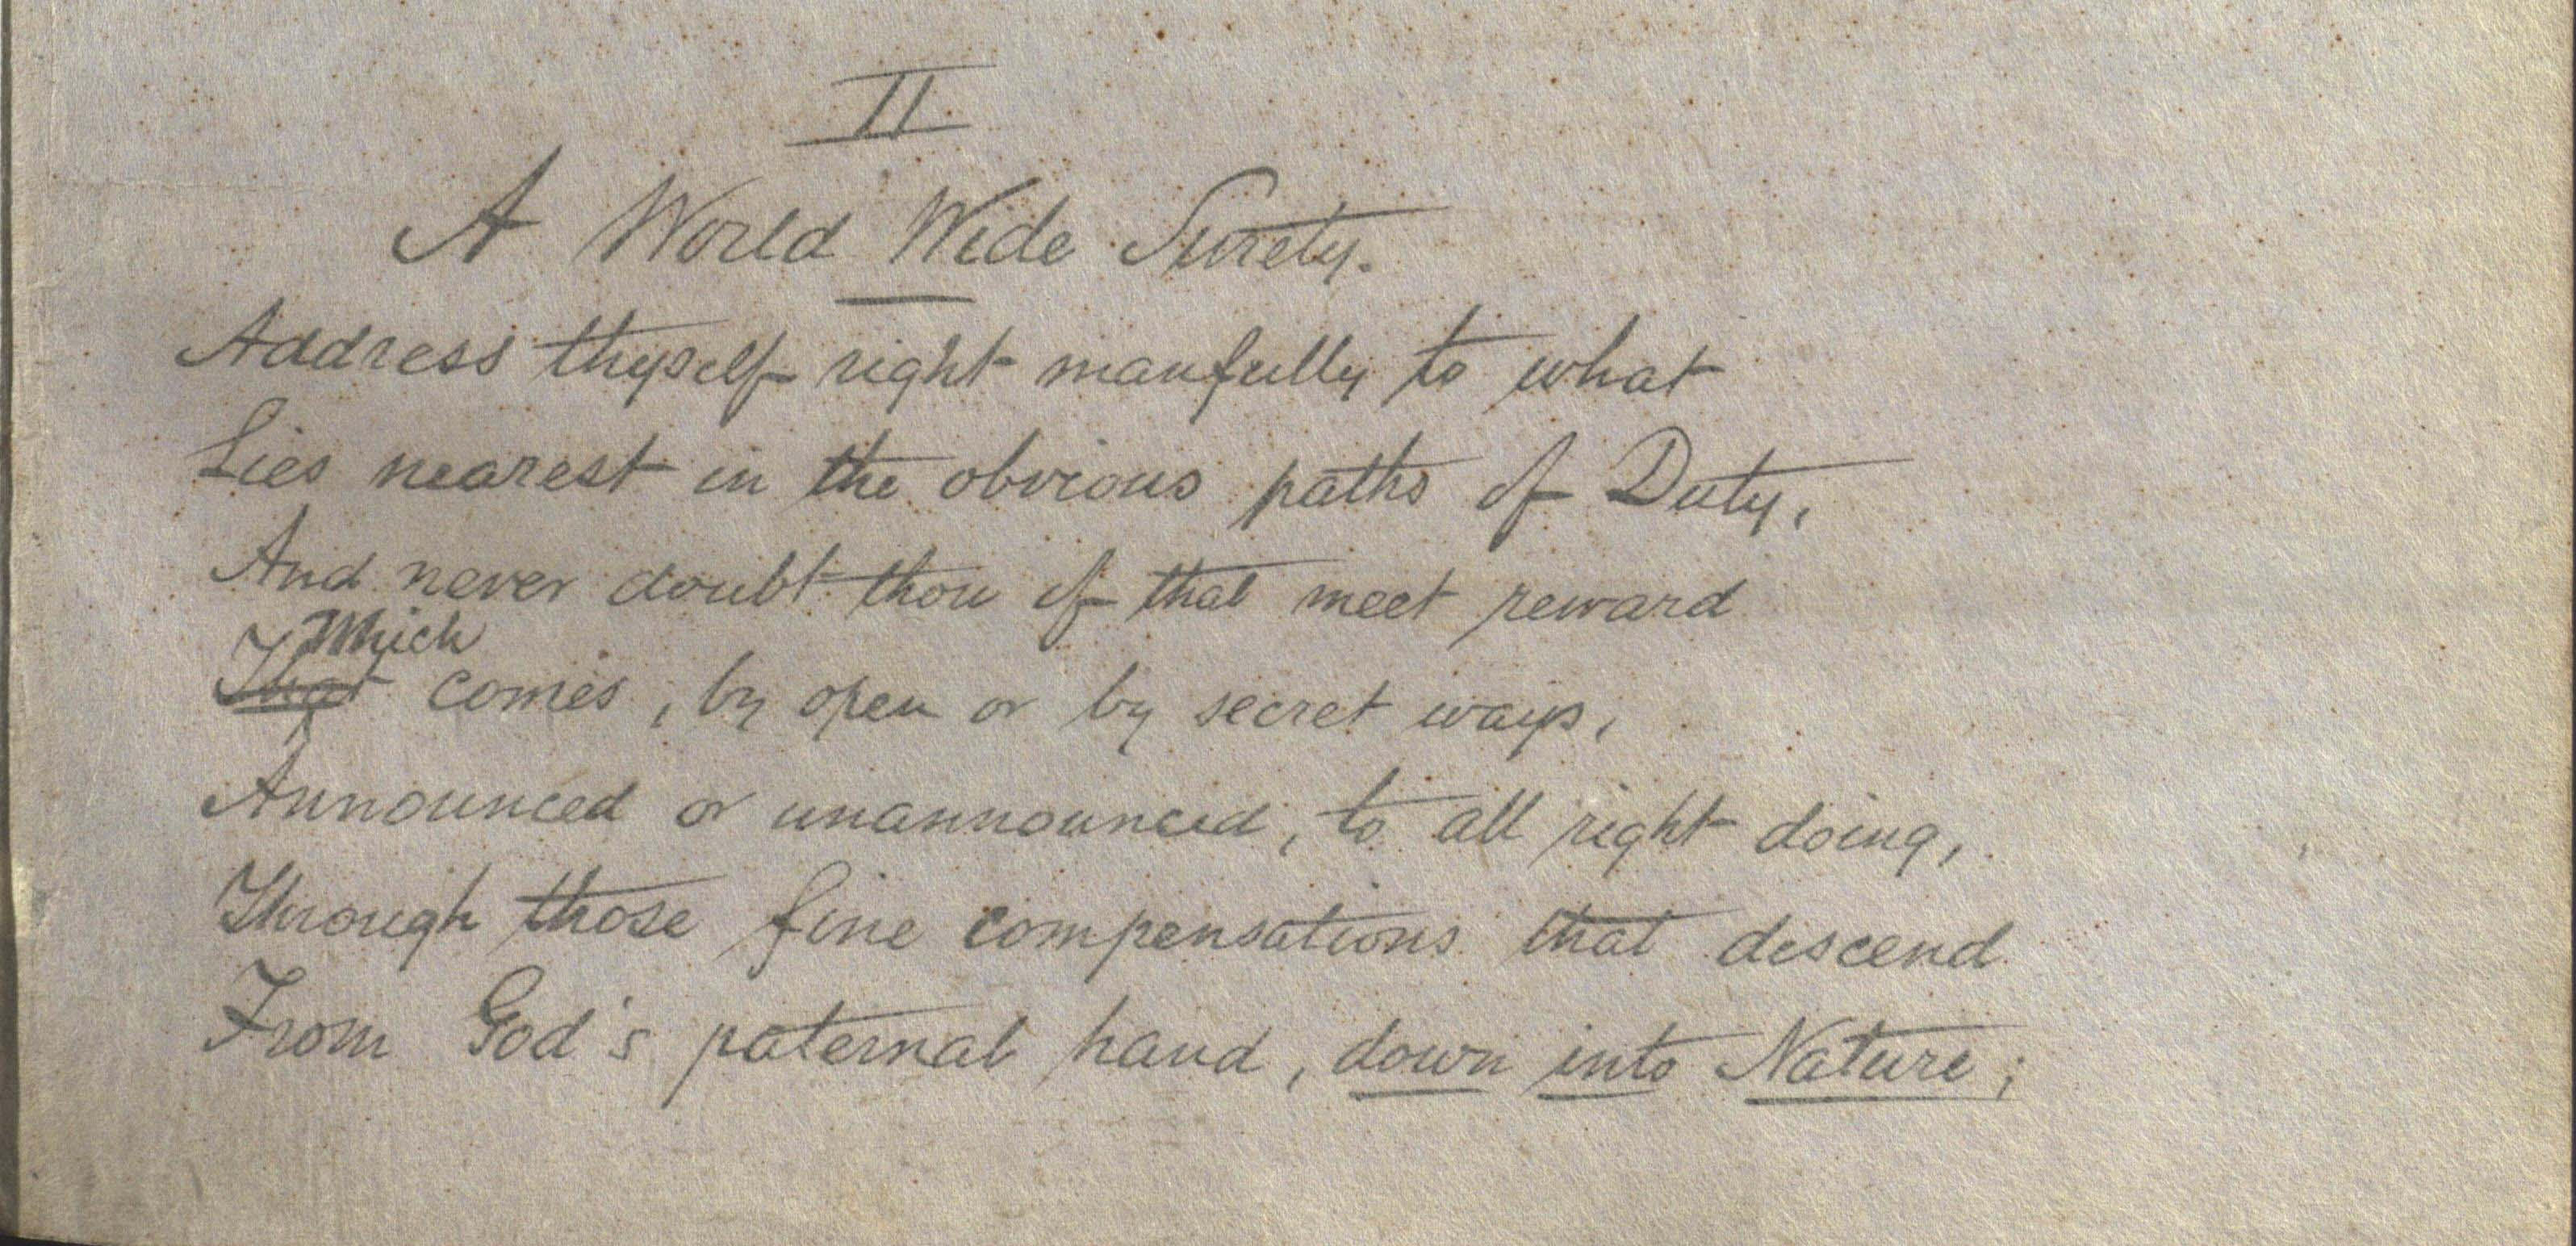 II
A World Wide Surety.
Address thyself right manfully to what
Lies nearest in the obvious paths of Duty,
And never doubt thou of that meet reward
Which
That comes, by open or by secret ways,
Announced or unannounced, to all right doing,
Through those fine compensations that descend
From God's paternal hand, down into Nature;